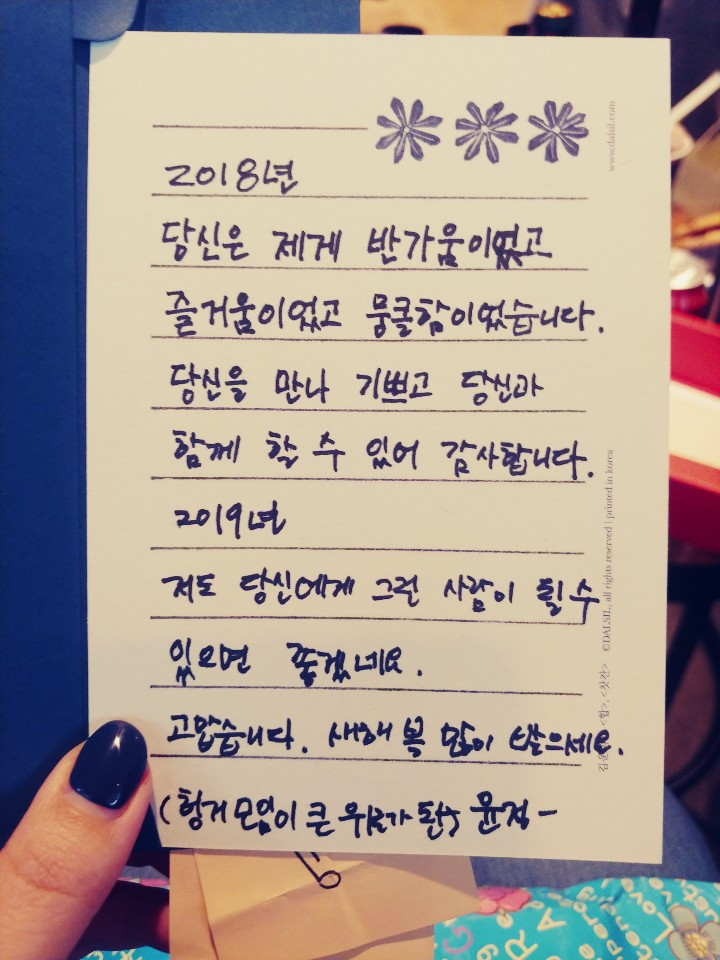 www.dalsil.com
2018년
당신은 제게 반가움이었고
즐거움이었고 뭉클함이었습니다.
당신을 만나 기쁘고 당신과
함께 할 수 있어 감사합니다.
2019년
저도 당신에게 그런 사람이 될 수
있으면 좋겠네요.
고맙습니다. 새해 복 많이 받으세요.
모임이 큰 위로가 윤정-
©DALSIL, all rights reserved | printed in korea